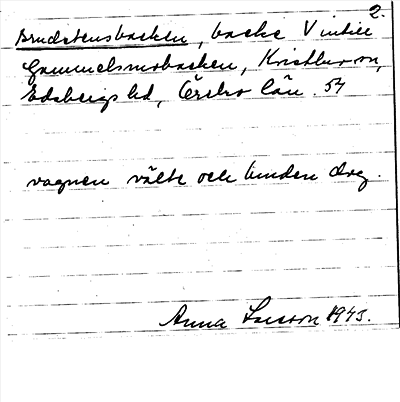 2.
Brudstensbacken, backe V intill
Gammelsmobacken, Knistabro sn,
Edsbergs hd, Örebro län. 54
vagnen välte och bruden dog.
Anna Larsson 1943.